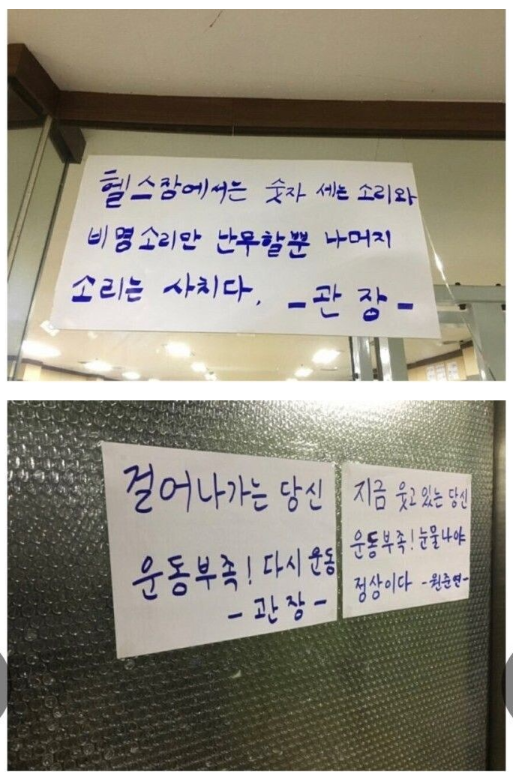 헬스장에서는 숫자 세는 소리와
비명소리만 난무할뿐 나머지
소리는 사치다.
-관장-
걸어나가는 당신
운동부족! 다시 운동
-관장-
지금 웃고있는 당신
운동부족! 눈물나야
정상이다 -원준연-